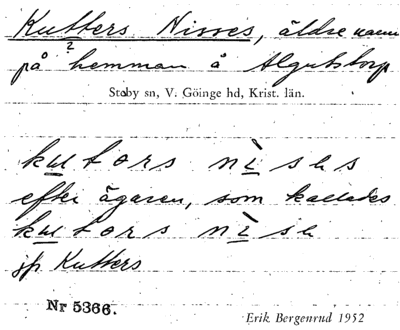 Kutters Nisses, äldre namn
?
på hemman å Algutstorp
Stoby sn, V. Göinge hd, Krist. län.
kutors nìses
efter ägaren, som kallades
kutors nìse
jfr Kutters
Nr 5366.
Erik Bergenrud 1952